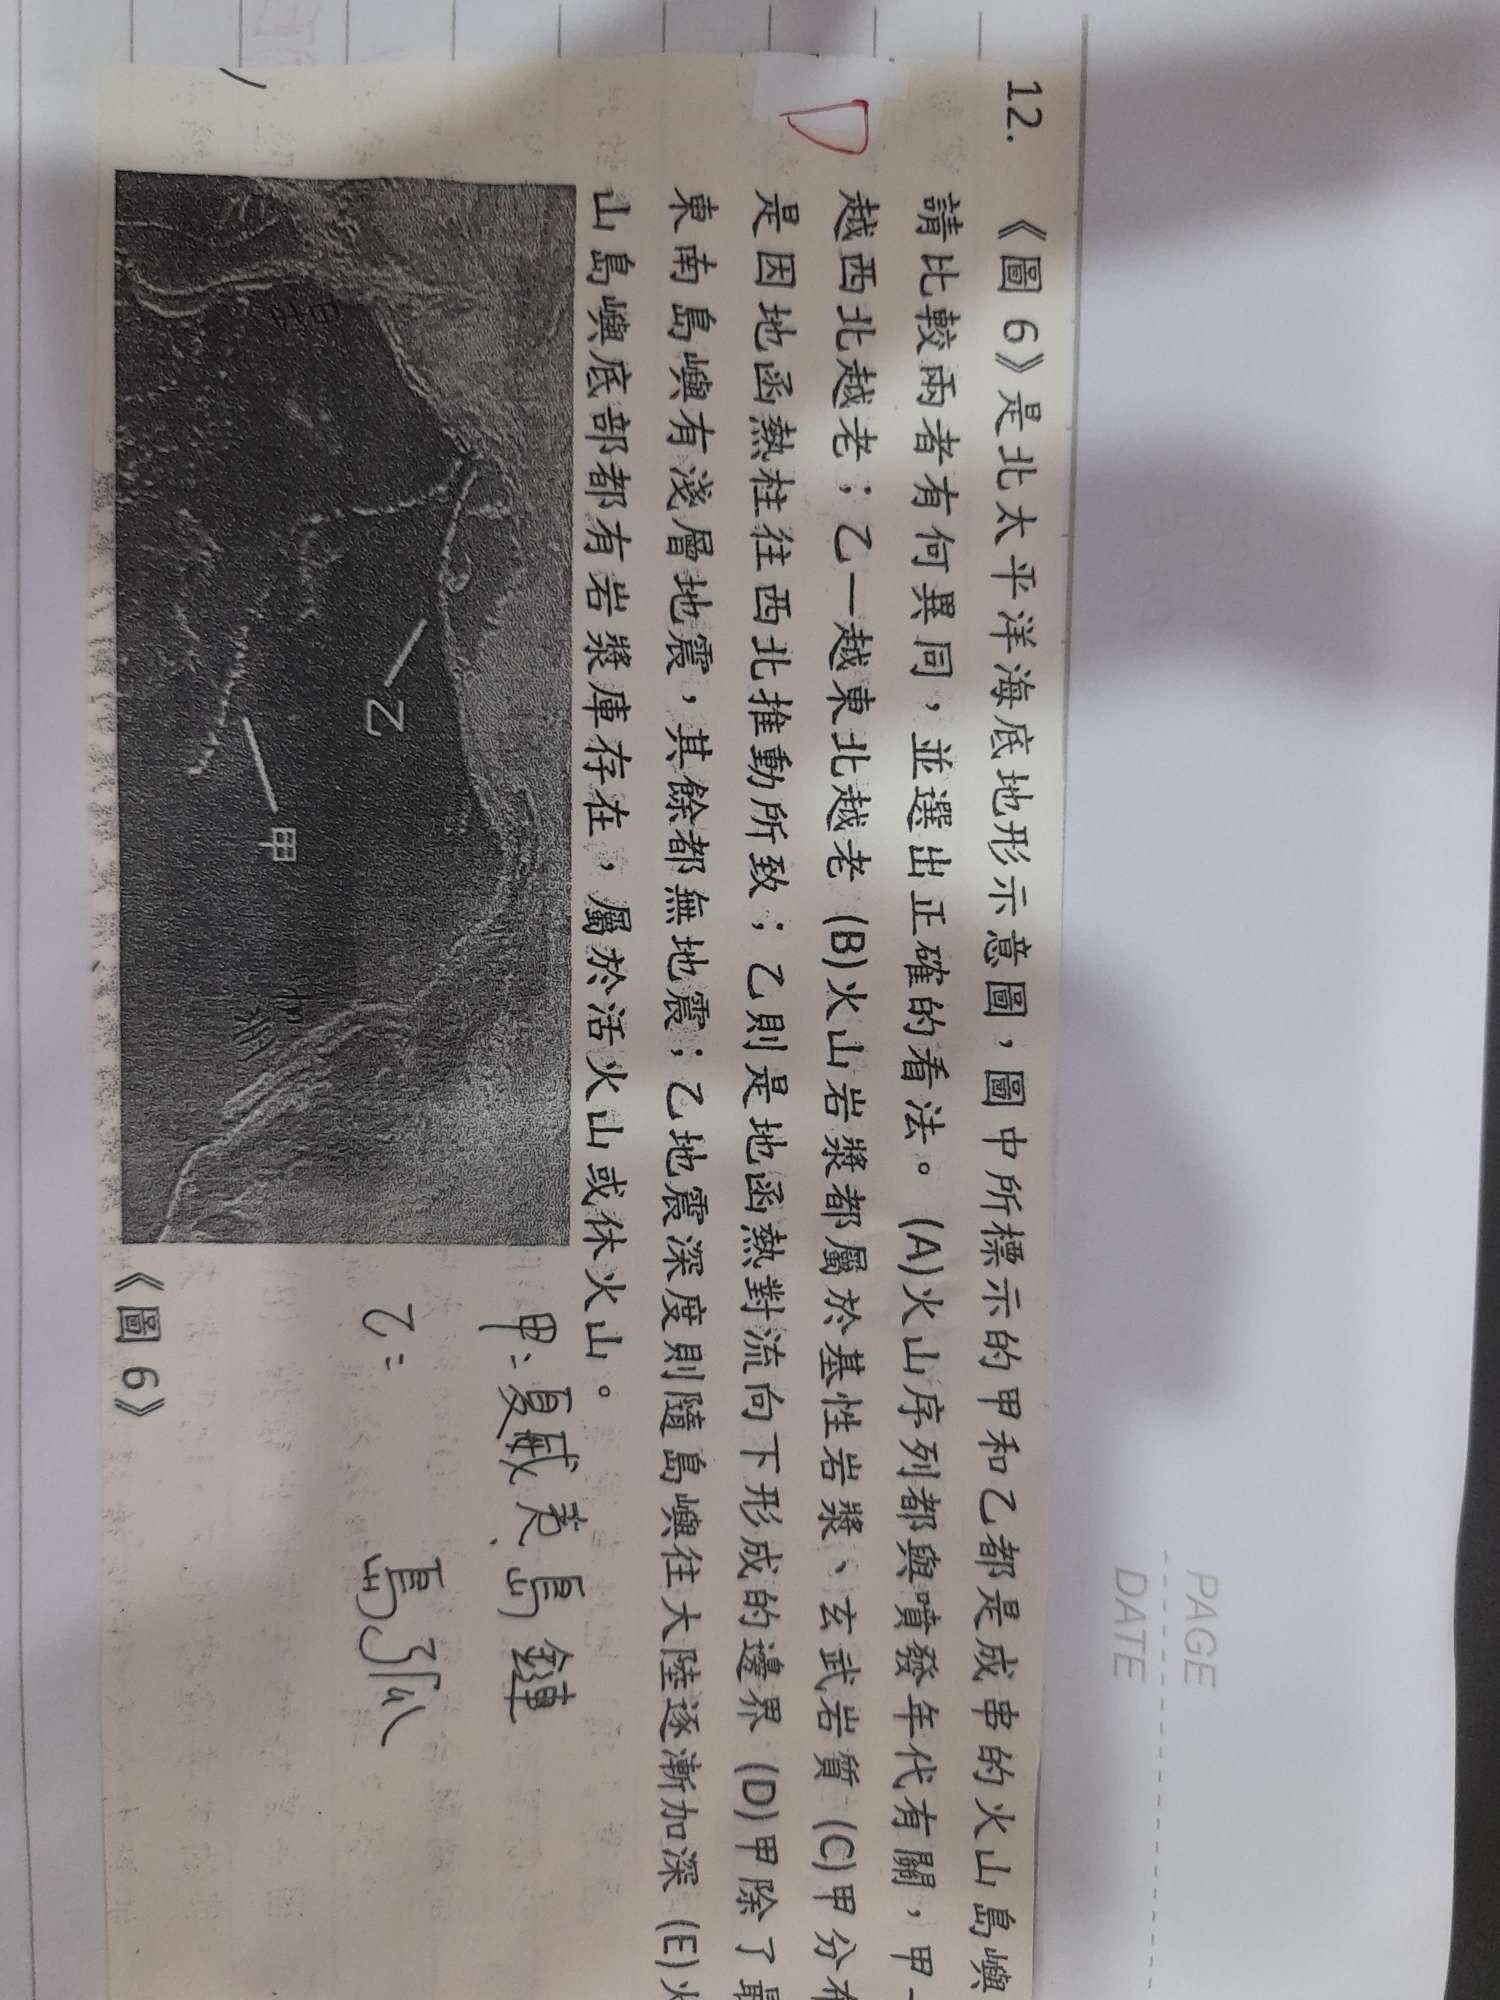 PAGE
DATE
12. 《圖 6》是北太平洋海底地形示意圖,圖中所標示的甲和乙都是成串的火山島嶼
請比較兩者有何異同,並選出正確的看法。(A)火山序列都與噴發年代有關,甲—
越西北越老;乙—越東北越老 (B)火山岩漿都屬於基性岩漿、玄武岩質 (C)甲分布
是因地函熱柱往西北推動所致;乙則是地函熱對流向下形成的邊界 (D)甲除了最
東南島嶼有淺層地震,其餘都無地震;乙地震深度則隨島嶼往大陸逐漸加深 (E)火
山島嶼底部都有岩漿庫存在,屬於活火山或休火山。
D
乙
甲
甲:夏威夷島鏈
乙: 島弧
《圖 6》